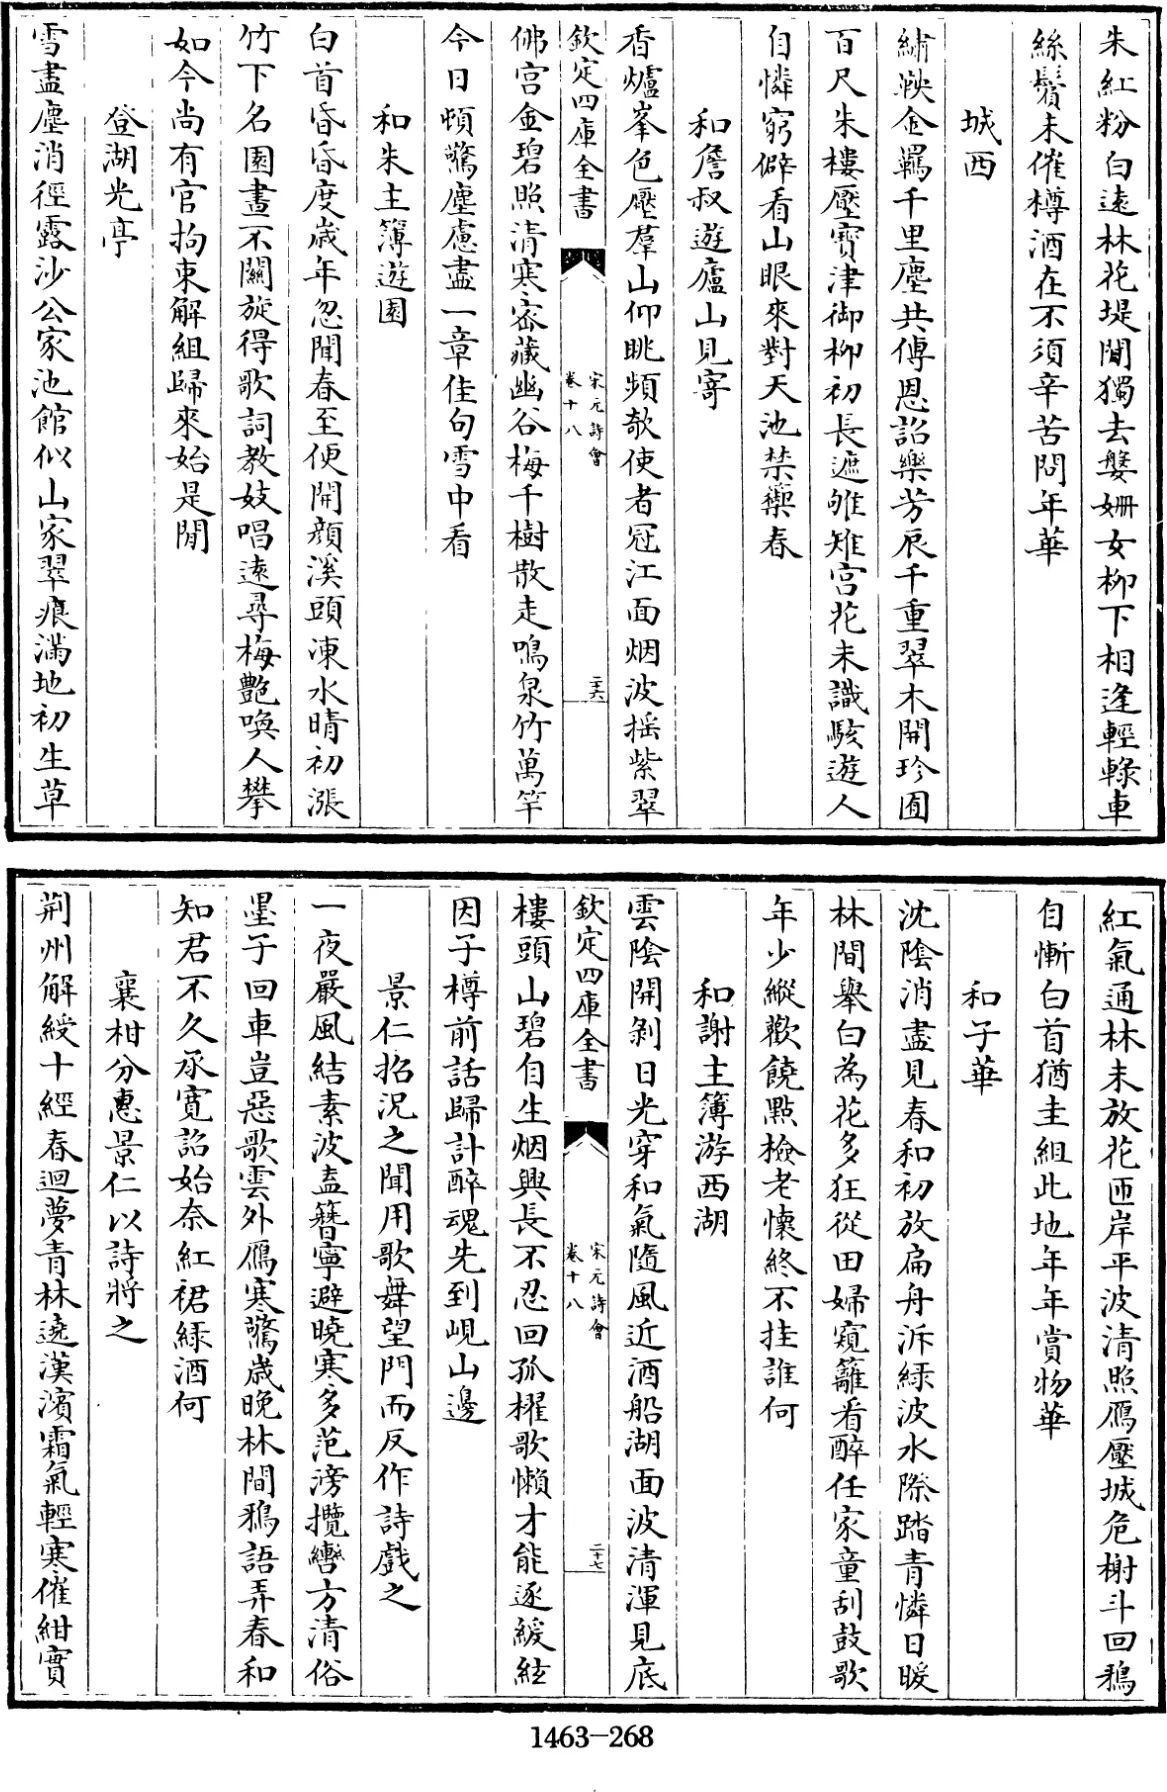 朱紅粉白遠林花堤間獨去媻姍女柳下相逢輕轑車
絲鬢未催樽酒在不須辛苦問年華
城西
繡鞅金羈千里塵共傳恩詔樂芳辰千重翠木開珍囿
百尺朱樓壓寶津御柳初長遮雊雉宮花未識駭遊人
自憐窮僻看山眼來對天池禁籞春
和詹叔遊廬山見寄
香爐峯色壓羣山仰眺頻欹使者冠江面烟波揺紫翠
欽定四庫全書
宋元詩會
卷十八
二十六
佛宮金碧照清寒宻藏幽谷梅千樹散走鳴泉竹萬竿
今日頓驚塵慮盡一章佳句雪中看
和朱主簿遊園
白首昏昏度歲年忽聞春至便開顔溪頭凍水晴初漲
竹下名園晝不關旋得歌詞教妓唱遠尋梅艷喚人攀
如今尚有官拘束解組歸來始是閒
登湖光亭
雪盡塵消徑露沙公家池館似山家翠痕滿地初生草
紅氣通林未放花匝岸平波清照雁壓城危榭斗回鴉
自慚白首猶圭組此地年年賞物華
和子華
沈陰消盡見春和初放扁舟泝綠波水際踏青憐日暖
林間舉白為花多狂從田婦窺籬看醉任家童刮鼓歌
年少縱歡饒點檢老懷終不拄誰何
和謝主簿游西湖
雲陰開剝日光穿和氣隨風近酒船湖面波清渾見底
欽定四庫全書
宋元詩會
卷十八
二十七
樓頭山碧自生烟興長不忍回孤櫂歌懶才能逐緩絃
因子樽前話歸計醉魂先到峴山邊
景仁招況之聞用歌舞望門而反作詩戲之
一夜嚴風結素波盍簪寧避曉寒多范滂攬轡方清俗
墨子回車豈惡歌雲外鴈寒驚歲晚林間鴉語弄春和
知君不久承寛詔始奈紅裙綠酒何
襄柑分惠景仁以詩將之
荆州解綬十經春迴夢青林遶漢濱霜氣輕寒催紺實
1463-268